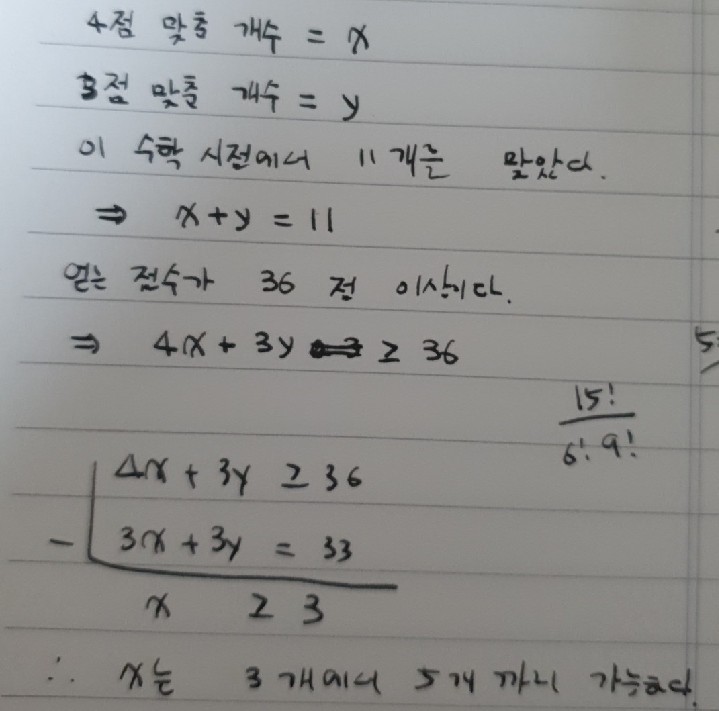 4점 맞춘 개수 = x
3점 맞춘 개수 = y
이 수학 시점에서 11개를 맞았다.
⇒ x+y = 11
얻는 점수가 36점 이상이다.
⇒ 4x + 3y ≥ 36
15!
6! 9!
4x + 3y ≥ 36
- 3x + 3y = 33
x ≥ 3
∴ x는 3개에서 5개 까지 가능하다.